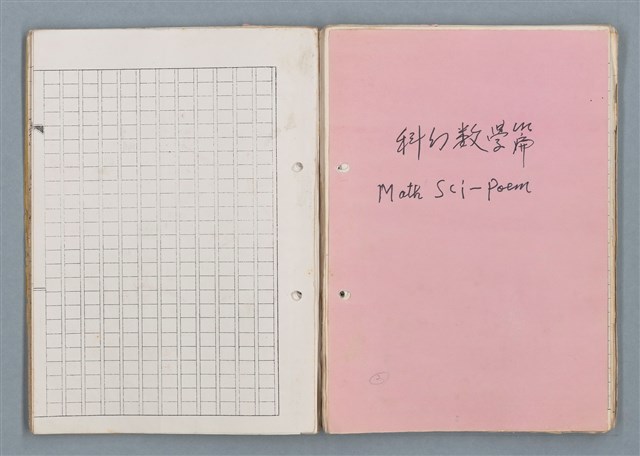 科幻数學篇
Math Sci-Poem